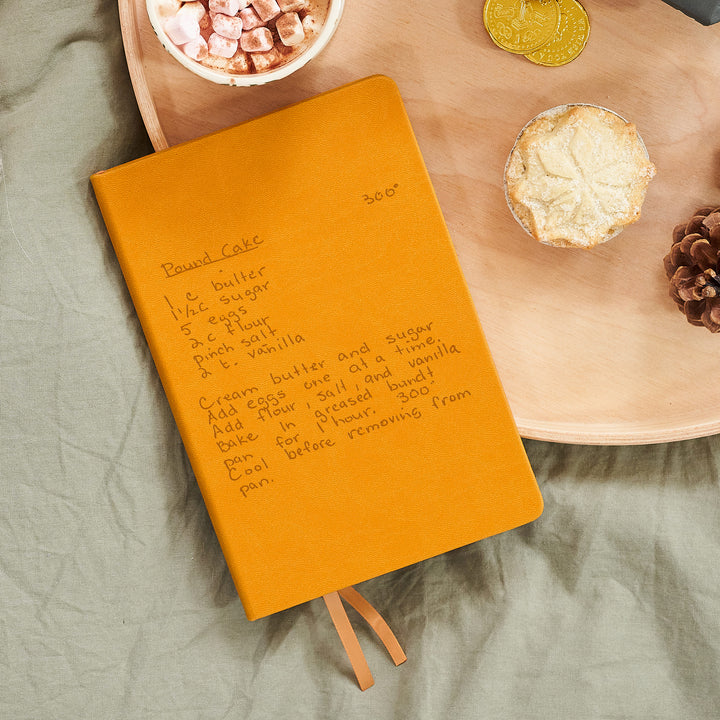 300°
Pound Cake
1 c butter
1 1/2 c sugar
5 eggs
2 c flour
pinch salt
2 t. vanilla
Cream butter and sugar
Add eggs one at a time.
Add flour, salt, and vanilla
Bake in greased bundt
pan for 1 hour. 300°
Cool before removing from
pan.